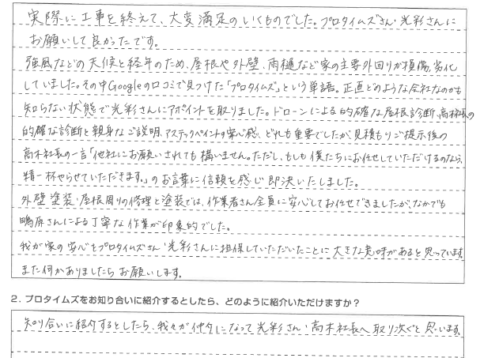 実際に工事を終えて、大変満足のいくものでした。プロタイムズさん・光彩さんに
お願いして良かったです。
強風などの天候と経年のため、屋根や外壁、雨樋など家の主要外回りが損傷、劣化
していました。その中Googleの口コミで見つけた「プロタイムズ」という単語。正直どのような会社なのかも
知らない状態で光彩さんにアポイントを取りました。ドローンによる的確な屋根診断、高木社長の
的確な診断と親身なご説明、アステックペイントの安心感、どれも重要でしたが、見積もりご提示後の
高木社長の一言「他社にお願いされても構いません。ただし、もしも僕たちにお任せしていただけるのなら、
精一杯やらせていただきます。」のお言葉に信頼を感じ即決いたしました。
外壁塗装・屋根周りの修理と塗装では、作業者さん全員に安心してお任せできましたが、なかでも
嶋原さんによる丁寧な作業が印象的でした。
我が家の安心をプロタイムズさん・光彩さんに担保していただいたことに大きな意味があると思っています。
また何かありましたらお願いします。
2. プロタイムズをお知り合いに紹介するとしたら、どのように紹介いただけますか?
知り合いに紹介するとしたら、我々が仲介になって光彩さん・高木社長へ取り次ぐと思います。